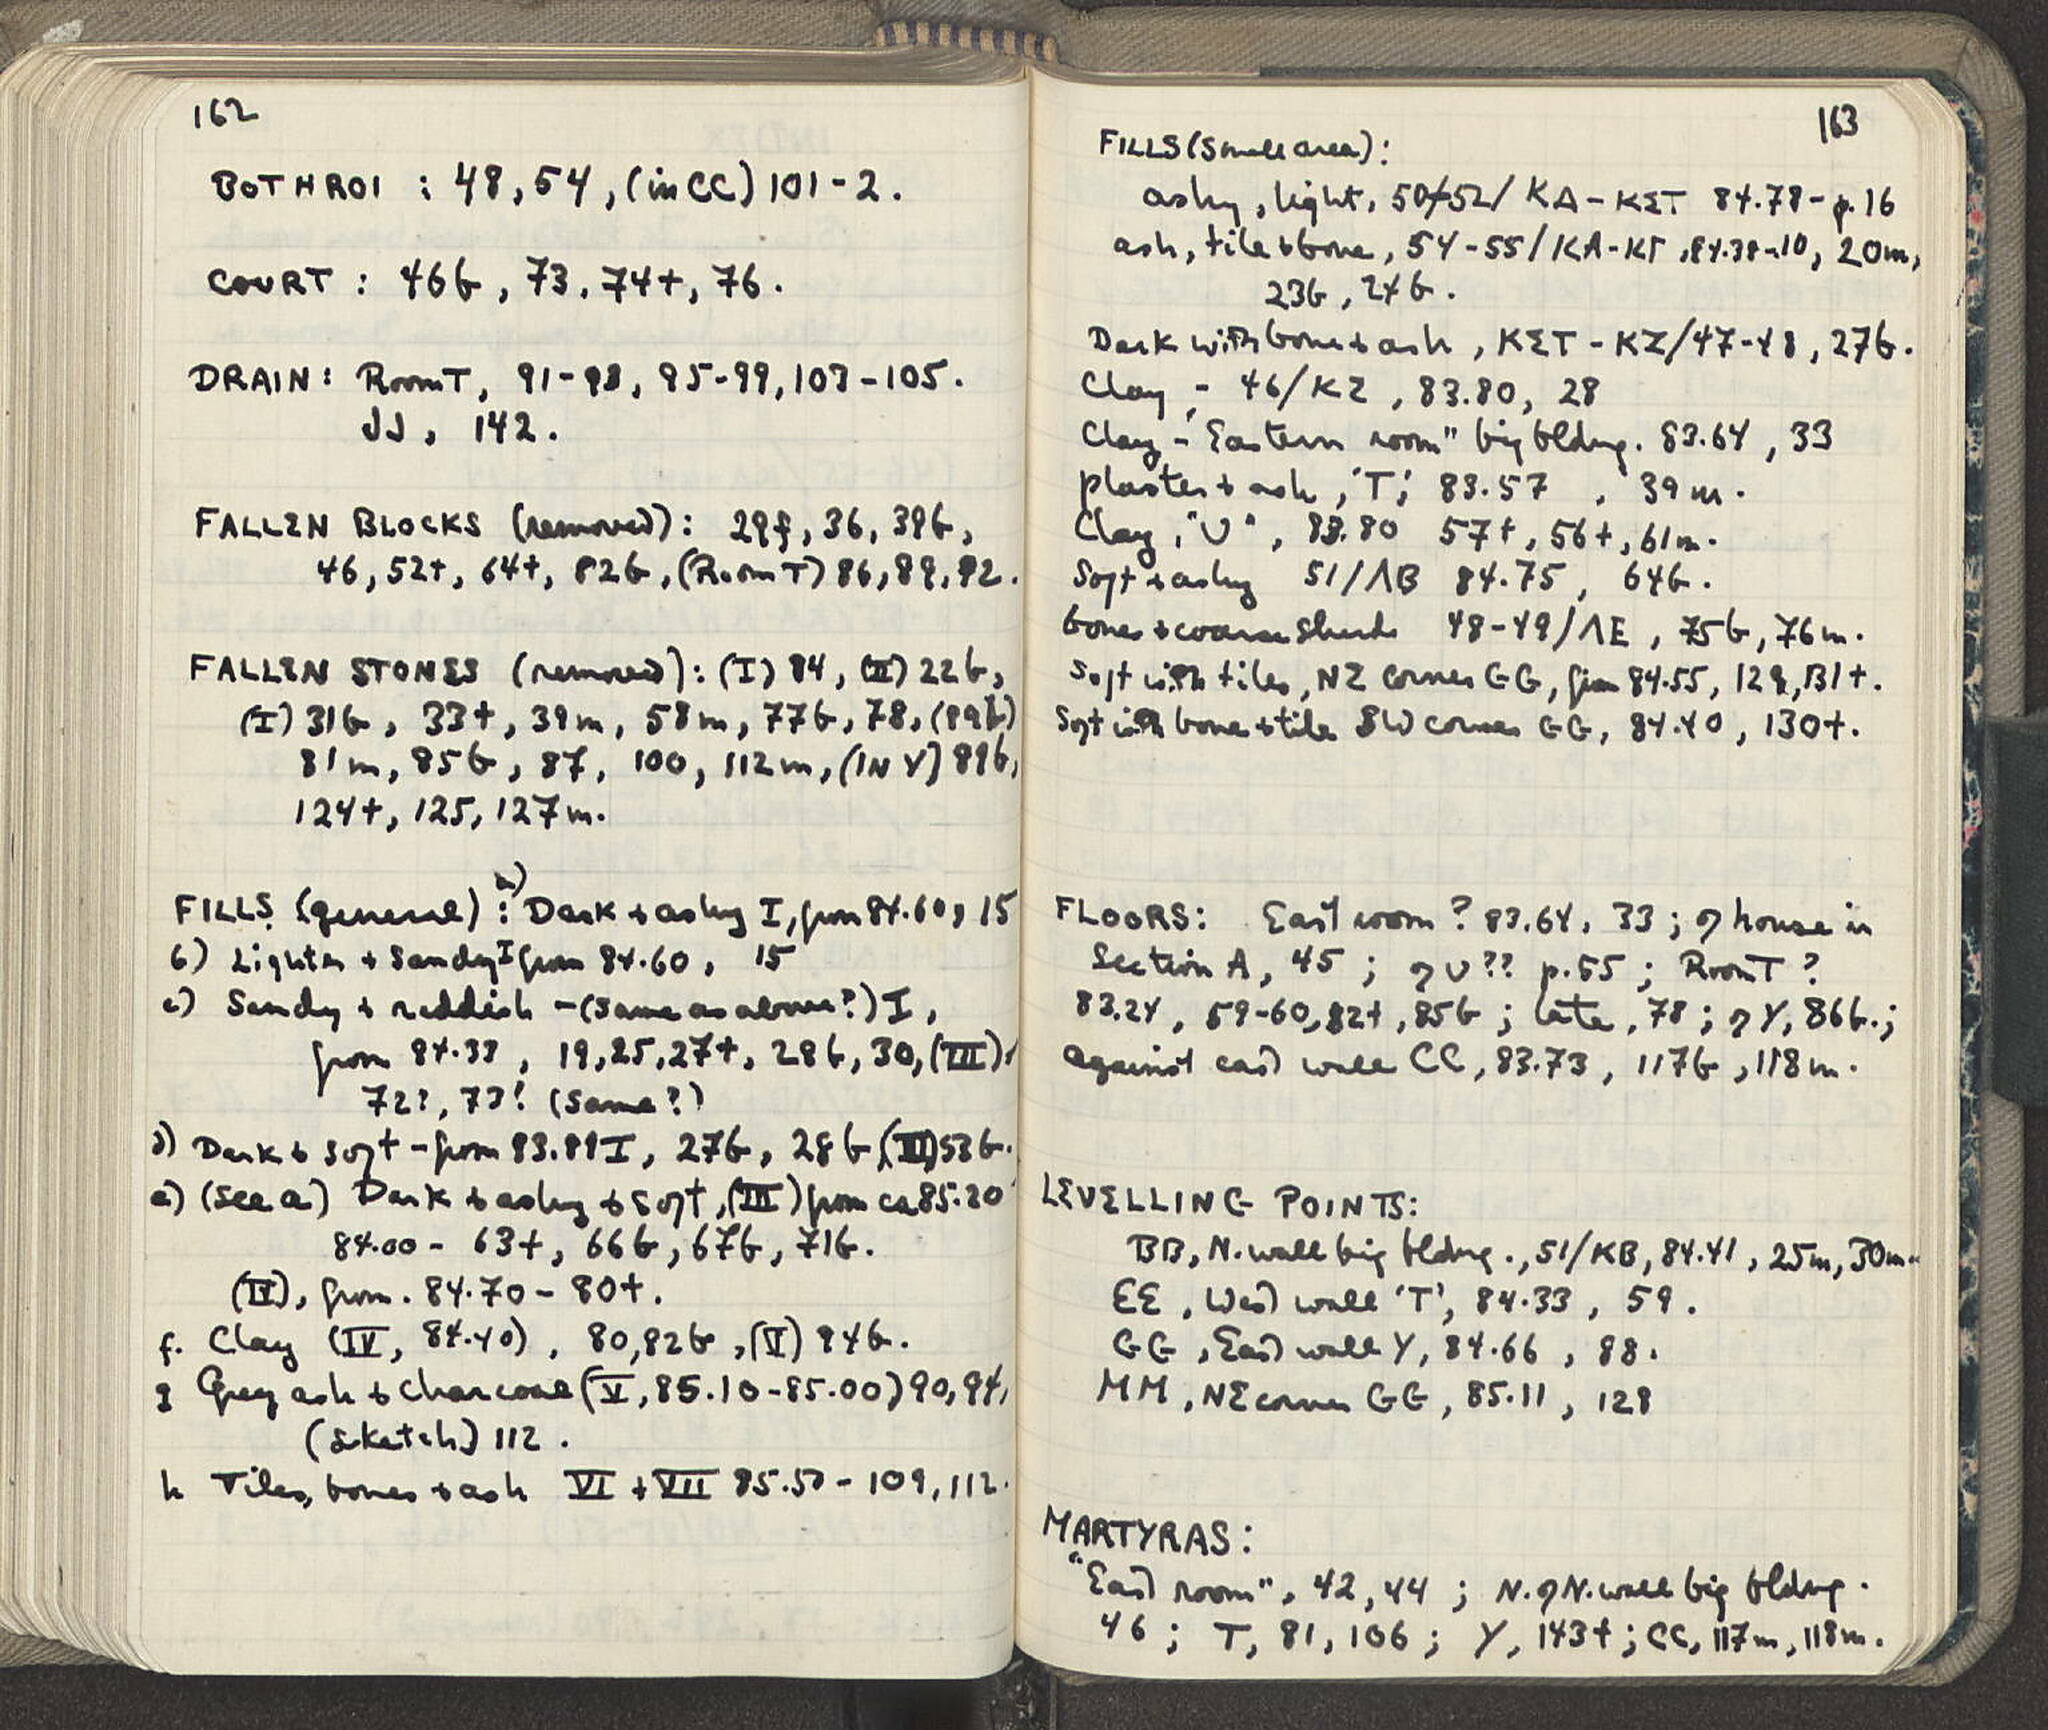 162
BOTHROI : 48, 54, (in CC) 101-2.
COURT : 46b, 73, 74t, 76.
DRAIN: Room T, 91-93, 95-99, 103-105.
JJ, 142.
FALLEN BLOCKS (removed): 29f, 36, 39b,
46, 52t, 64t, 82b, (Room T) 86, 89, 92.
FALLEN STONES (removed): (I) 84, (II) 22b,
(I) 31b, 33t, 39m, 58m, 77b, 78, (89b)
81m, 85b, 87, 100, 112m, (IN Y) 89b,
124t, 125, 127m.
FILLS (general) : a) Dark + ashy I, from 84.60, 15
b) Lighter + Sandy I from 84.60, 15
c) Sandy + reddish - (same as above?) I,
from 84.33, 19, 25, 27t, 28b, 30, (III)
72?, 73? (same?)
d) Dark + soft - from 83.89 I, 27b, 28b, (II) 53b.
e) (see a) Dark + ashy + soft, (III) from ca 85.20
84.00 - 63t, 66b, 67b, 71b.
(IV), from. 84.70 - 80t.
f. Clay (IV, 84.40), 80, 82b, (V) 94b.
g Grey ash + charcoal (V, 85.10-85.00) 90, 94,
(sketch) 112.
h Tiles, bones + ash VI + VII 85.50 - 109, 112.
163
FILLS (small area):
ashy, light, 50/52/ KA-KΣT 84.78 - p. 16
ash, tile + bone, 54-55/KA-KΓ, 84.38-10, 20m,
23b, 24b.
Dark with bone + ash, KΣT-KZ/47-48, 27b.
Clay, - 46/KZ, 83.80, 28
Clay - "Eastern room" big bldng. 83.64, 33
plaster + ash, 'T', 83.57, 39m.
Clay, "U", 83.80 57t, 56t, 61m.
Soft + ashy 51/ΛB 84.75, 64b.
bones + coarse sherds 48-49/ΛE, 75b, 76m.
Soft with tiles, NE corner GG, from 84.55, 129, 131t.
Soft with bone + tile SW corner GG, 84.40, 130t.
FLOORS: East room? 83.64, 33; of house in
Section A, 45; of U?? p. 55; Room T?
83.24, 59-60, 82t, 85b; late, 78; of Y, 86b.;
against east wall CC, 83.73, 117b, 118m.
LEVELLING POINTS:
BB, N. wall big bldng., 51/KB, 84.41, 25m, 30m.
EE, West wall 'T', 84.33, 59.
GG, East wall Y, 84.66, 88.
MM, NE corner GG, 85.11, 128
MARTYRAS:
"East room", 42, 44; N. of N. wall big bldng.
46; T, 81, 106; Y, 143t; CC, 117m, 118m.